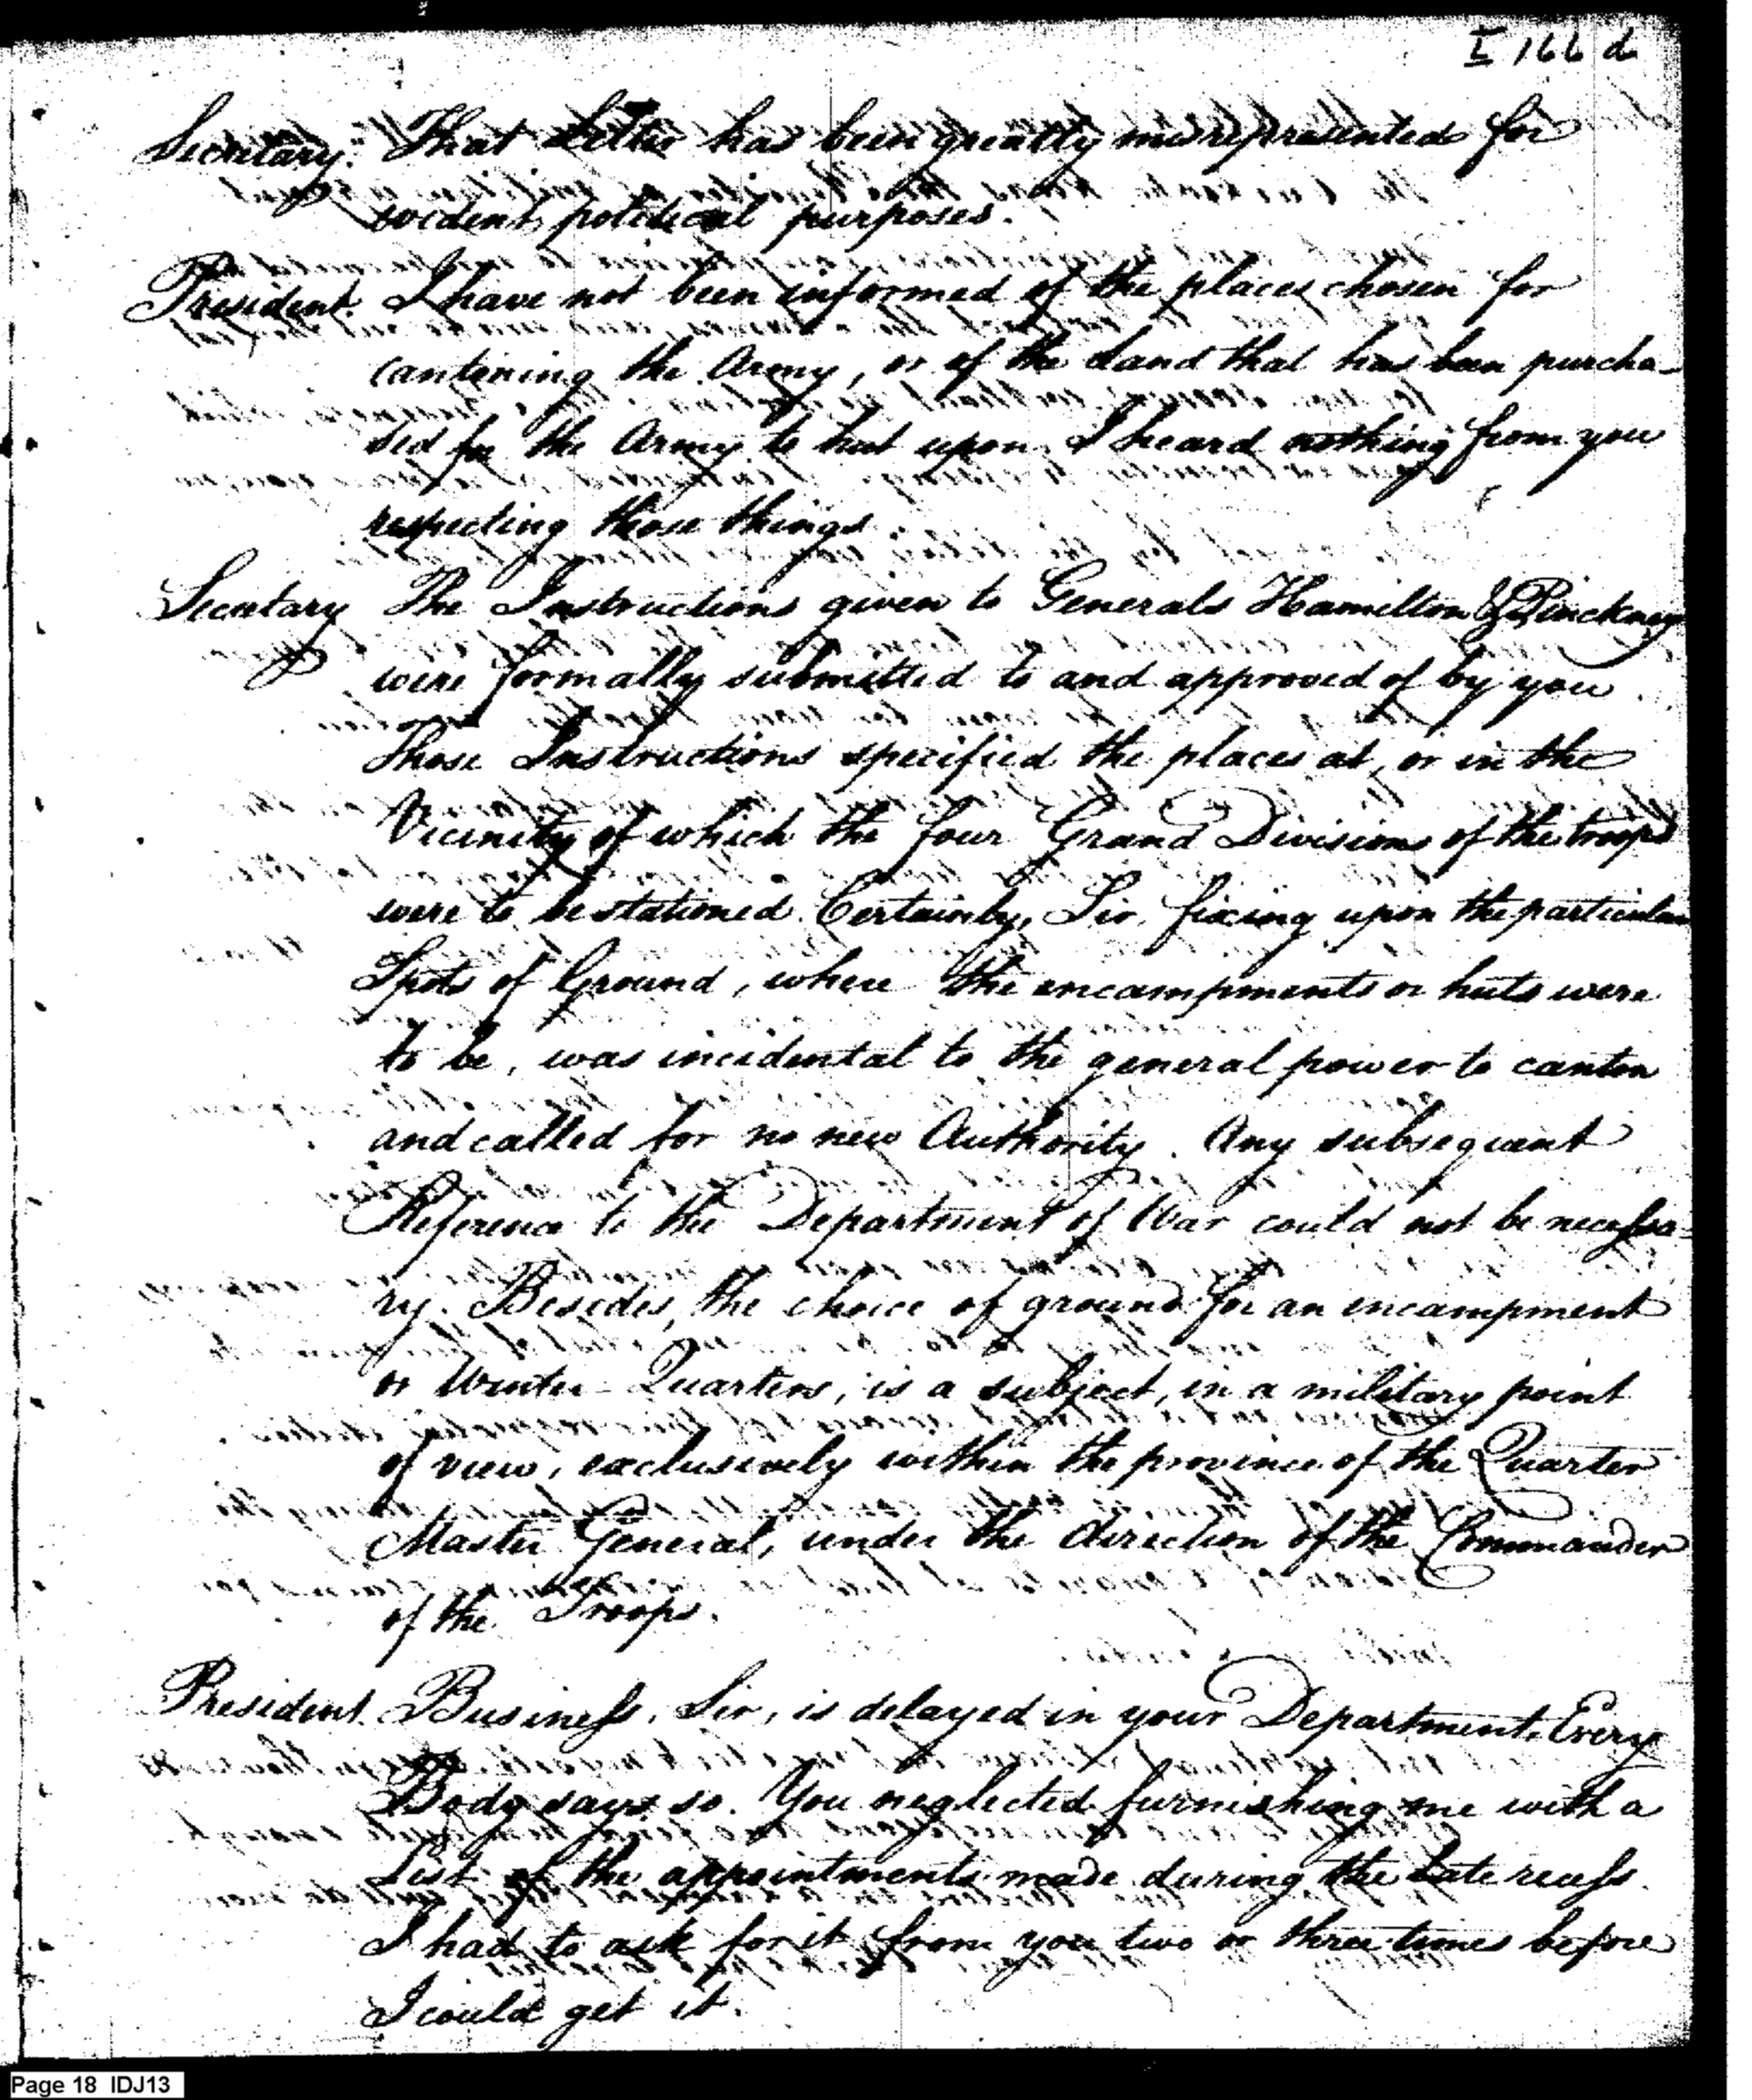 I 166 d
Secretary. That Letter has been greatly misrepresented for
evident political purposes.
President. I have not been informed of the places chosen for
cantoning the Army, or of the Land that has been purcha-
sed for the Army to hut upon. I heard nothing from you
respecting those things.
Secretary The Instructions given to Generals Hamilton & Pinckney
were formally submitted to and approved of by you.
Those Instructions specified the places at, or in the
Vicinity of which the four Grand Divisions of the troops
were to be stationed. Certainly, Sir, fixing upon the particular
Spots of Ground, where the encampments or huts were
to be, was incidental to the general power to canton
and called for no new Authority. Any subsequent
Reference to the Department of War could not be necessa-
ry. Besides, the choice of ground for an encampment
or Winter-Quarters, is a subject, in a military point
of view, exclusively within the province of the Quarter
Master General, under the direction of the Commander
of the Troops.
President. Business, Sir, is delayed in your Department. Every
Body says so. You neglected furnishing me with a
List of the appointments made during the late recess.
I had to ask for it from you two or three times before
I could get it.
Page 18 IDJ13